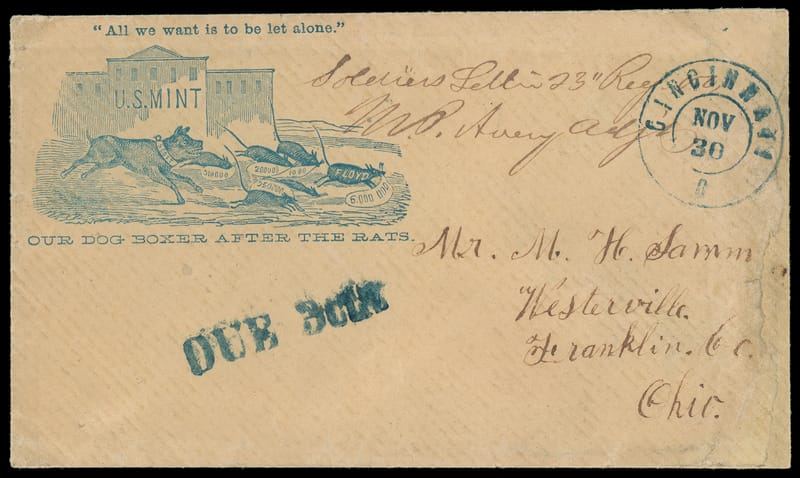 “All we want is to be let alone.”
U.S. MINT
FLOYD
6.000 000
OUR DOG BOXER AFTER THE RATS.
Soldiers Letter 23" Reg
Avery Adj
CINCINNATI
NOV
30
O
DUE 3cts
Mr. M. H. Samm
Westerville.
Franklin. Co.
Ohio.